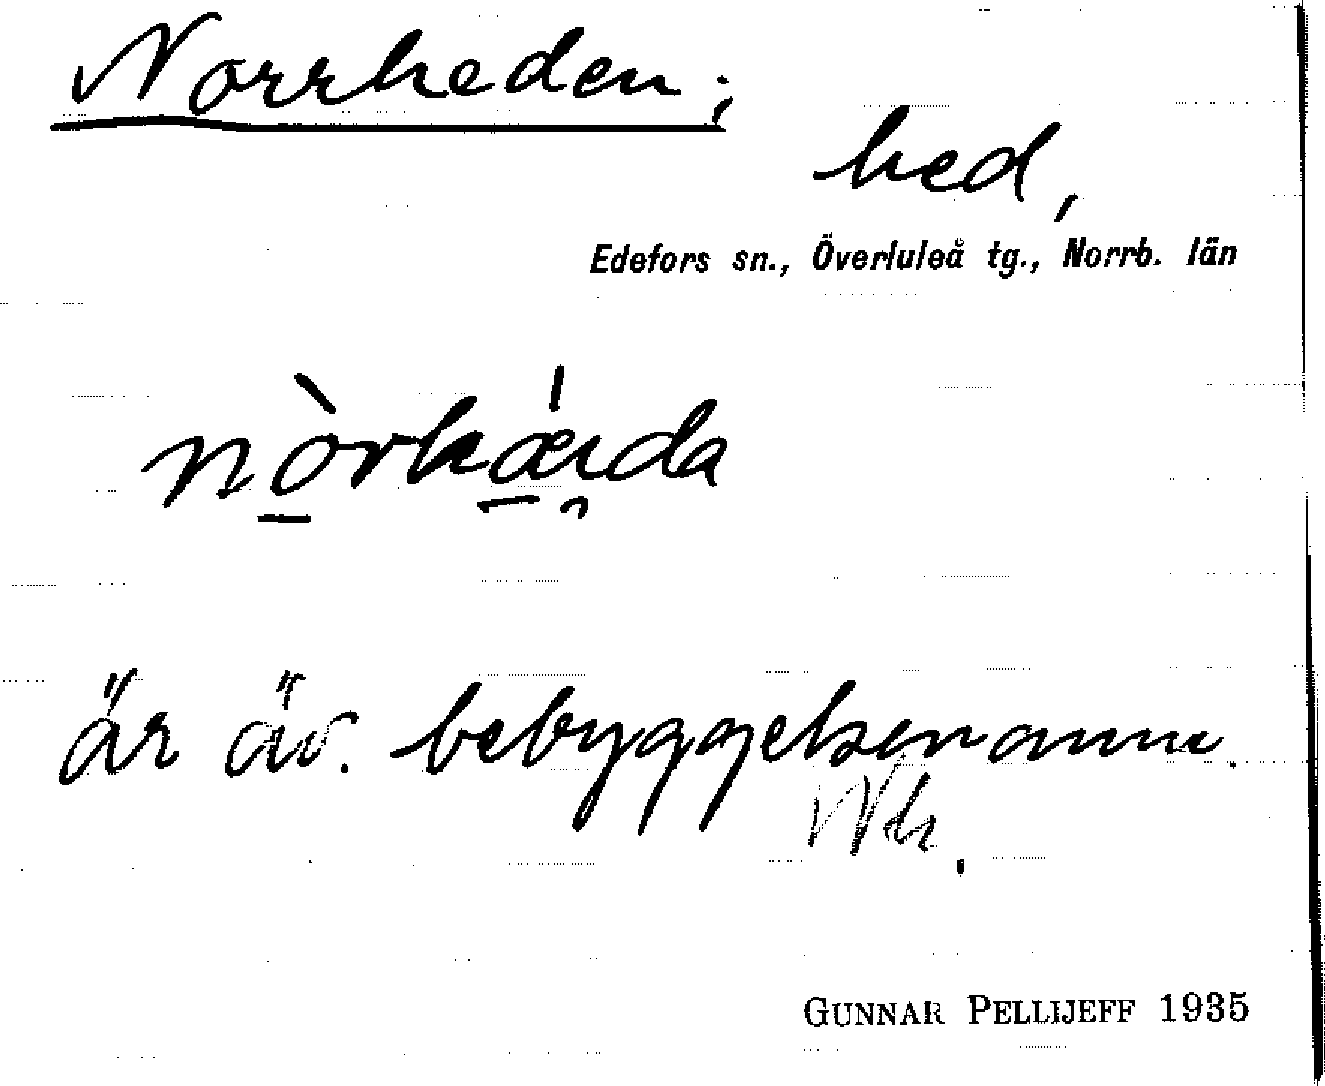 Norrheden;
hed,
Edefors sn., Överluleå tg., Norrb. län
är äv. bebyggelsenamn.
GUNNAR PELLIJEFF 1935